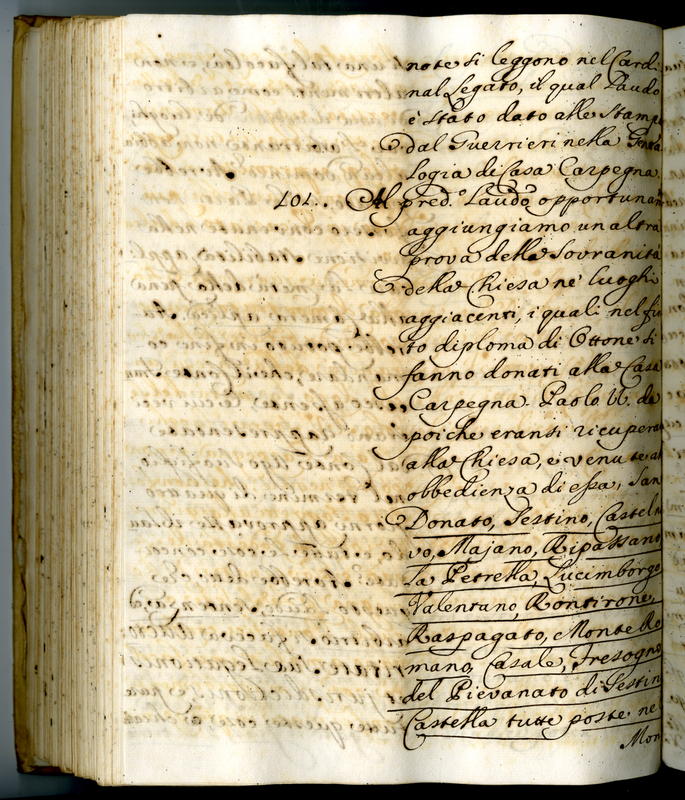 note si leggono nel Cardi
nal Legato, il qual Laudo
è stato dato alle Stamp
dal Guerrieri nella Genea
logia di Casa Carpegna.
101.. Al pred.º Laudo opportunam
aggiungiamo un altra
prova della Sovranità
della Chiesa ne' luoghi
aggiacenti, i quali nel fin
to diploma di Ottone si
fanno donati alla Casa
Carpegna. Paolo II. da
poiche eransi ricupera
alla Chiesa, e venute al
obbedienza di essa, San
Donato, Sestino, Casteln
vo, Majano, Ripassano
La Petrella, Lucimborgo
Valentano, Rontirone,
Raspagato, Monte Ro
mano, Casale, Fresogno
del Pievanato di Sestin
Castella tutte poste ne
Mon